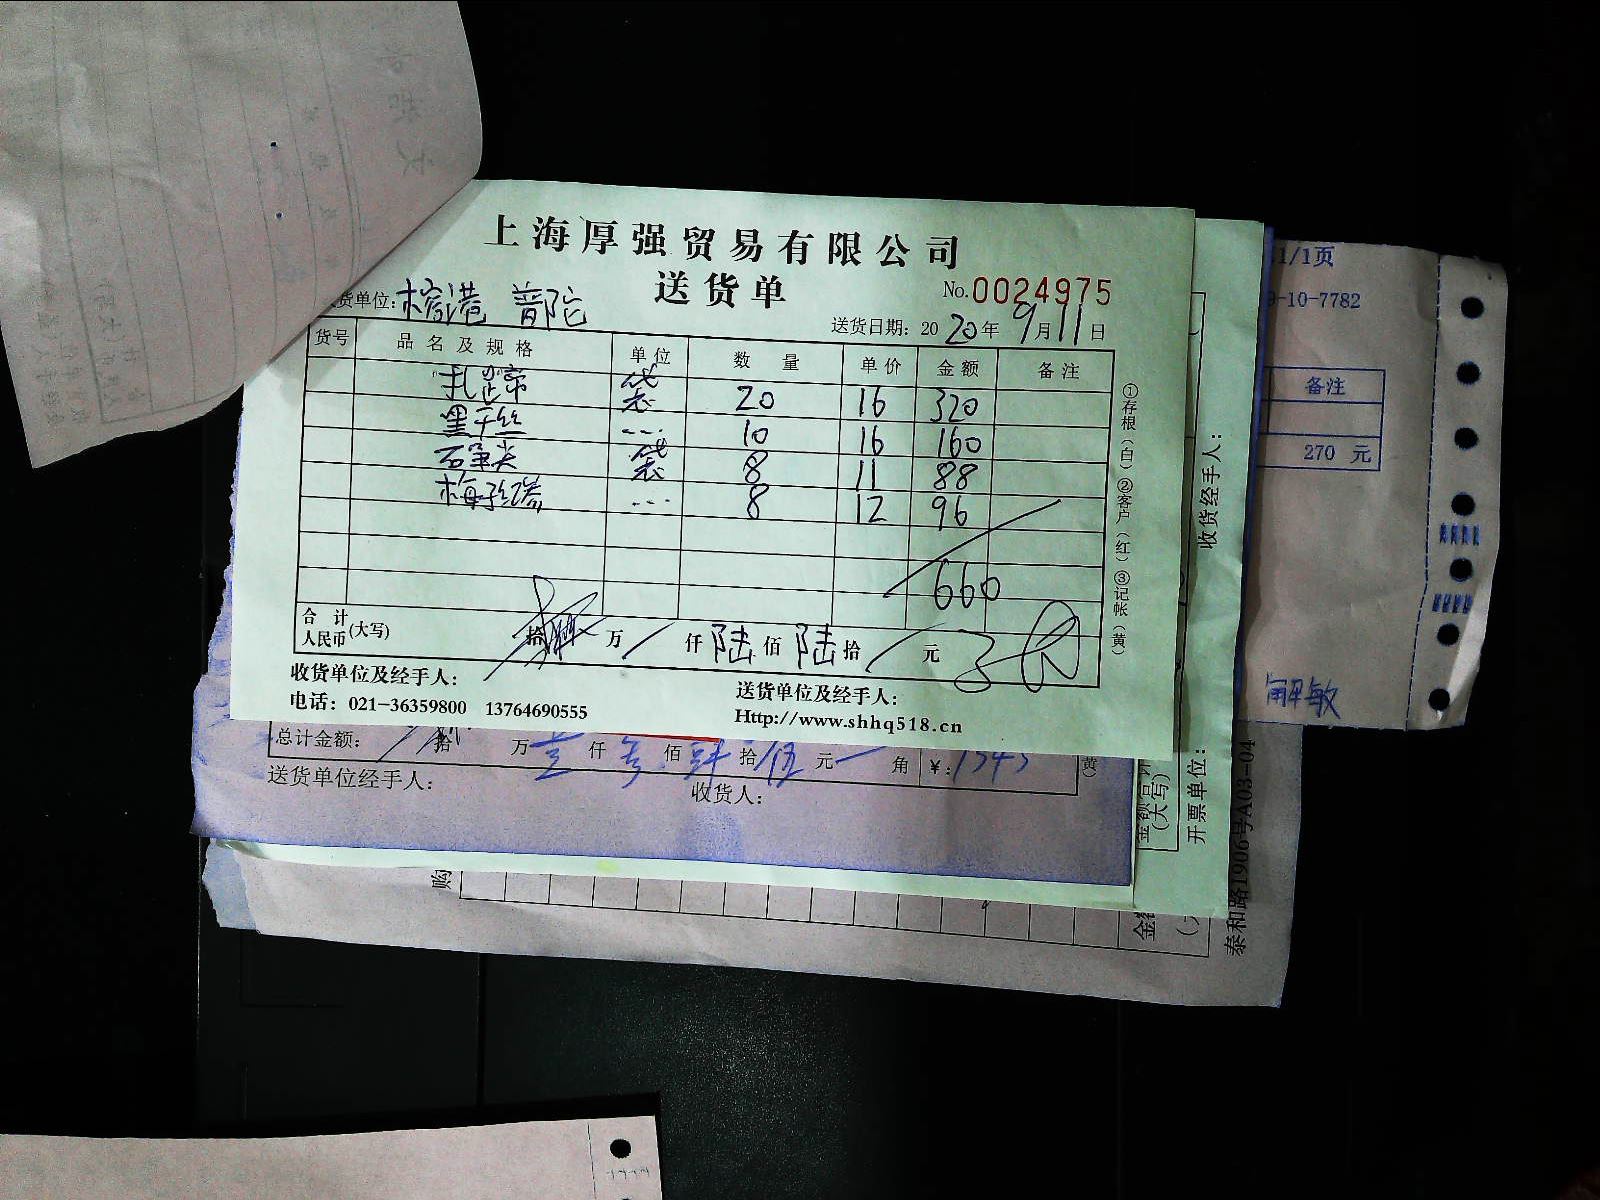 上海厚强贸易有限公司
送货单
No.0024975
货单位: 榕港 普陀
送货日期: 2020年9月11日
货号 品名及规格 单位 数量 单价 金额 备注
袋 20 16 320
黑千丝 10 16 160
石笋尖 袋 8 11 88
8 12 96
660
合计人民币(大写) 拾 万 仟 陆 佰 陆 拾 元
收货单位及经手人:
送货单位及经手人:
电话: 021-36359800 13764690555
Http://www.shhq518.cn
①存根(白)②客户(红)③记帐(黄)
总计金额: 拾 万 壹 仟 叁 佰 肆 拾 伍 元 角 ¥: 1345
送货单位经手人:
收货人:
收货经手人:
开票单位:
(大写)
泰和路1906号A03-04
1/1页
9-10-7782
备注
270 元
解敏
购
金